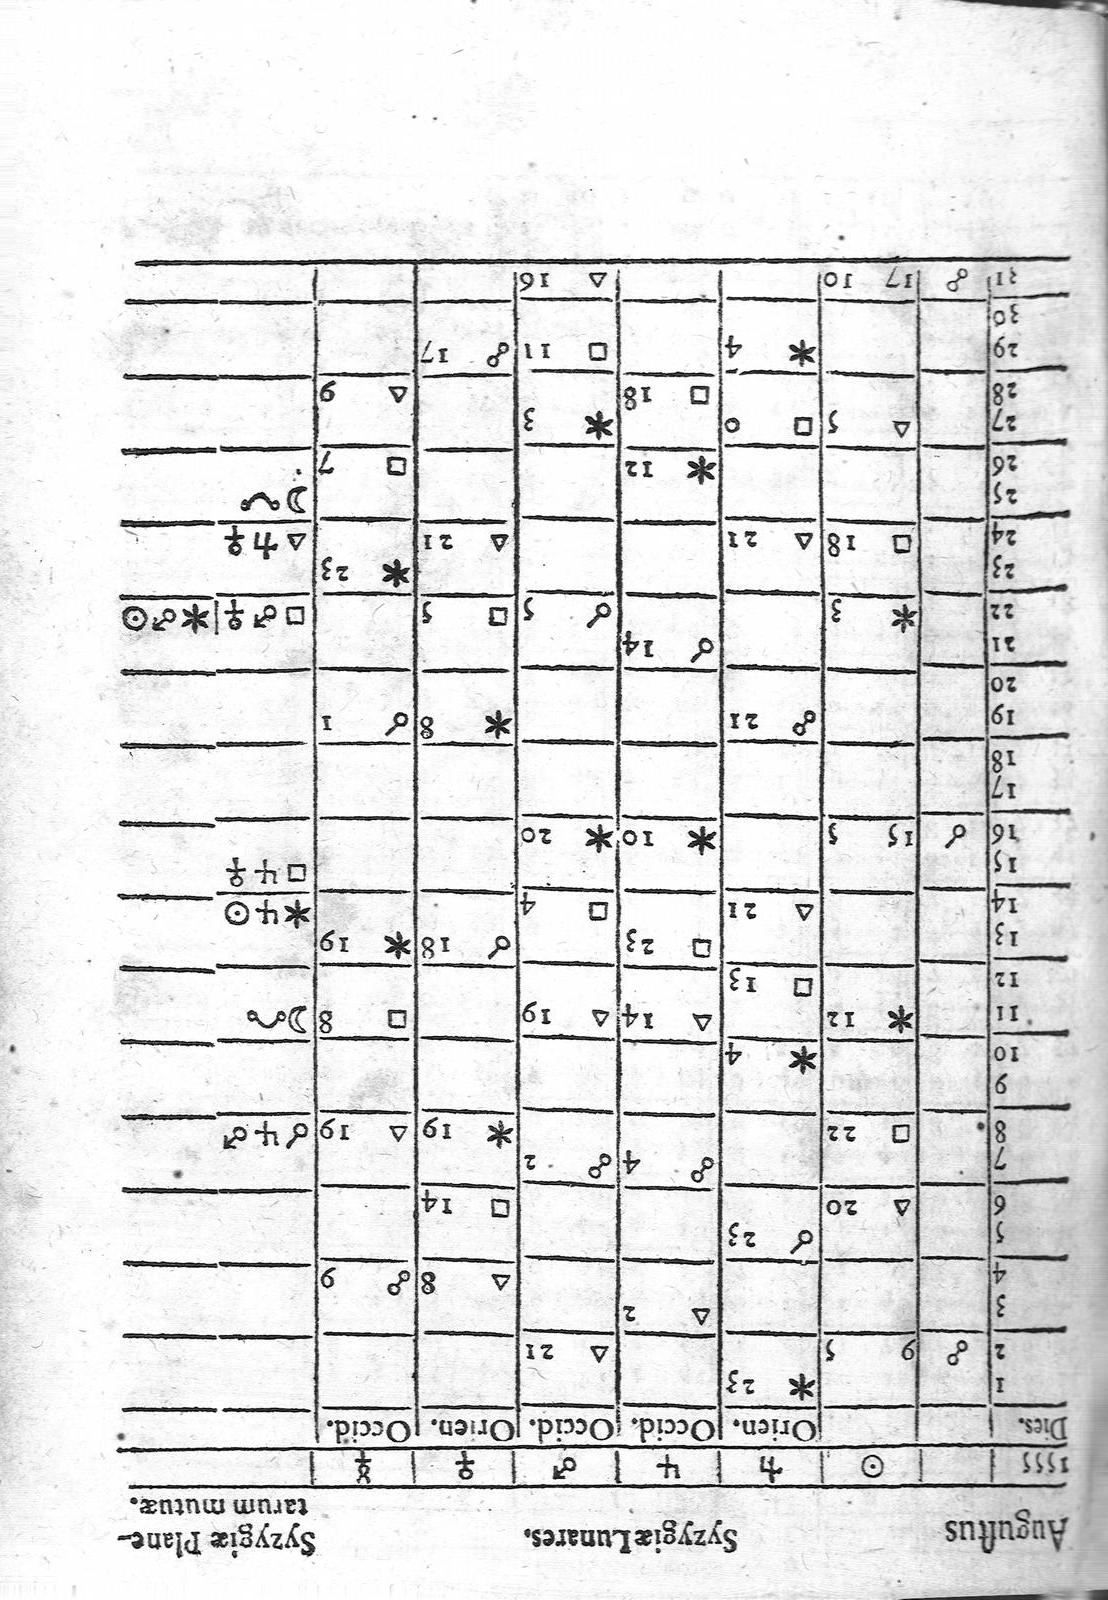 Auguſtus Syzygiæ Lunares. Syzygiæ Plane-
tarum mutuæ.
1555 ☉ ♄ ♃ ♂ ♀ ☿
Dies. Orien. Occid. Occid. Orien. Occid.
1 ✶ 23
2 ☍ 9 5 △ 21
3 △ 2
4 △ 8 ☍ 9
5 ☌ 23
6 △ 20 □ 14
7 ☍ 4 ☍ 2
8 □ 22 ✶ 19 △ 19 ☌ ♃ ♂
9
10 ✶ 4
11 ✶ 12 △ 14 △ 19 □ 8 ☽
12 □ 13
13 □ 23 ☌ 18 ✶ 19
14 △ 21 □ 4 ✶ ♃ ☉
15 □ ♃ ♀
16 ☌ 15 5 ✶ 10 ✶ 20
17
18
19 ☍ 21 ✶ 8 ☌ 1
20
21 ☌ 14
22 ✶ 3 ☌ 5 □ 5 □ ♂ ♀ ✶ ♂ ☉
23 ✶ 23
24 □ 18 △ 21 △ 21 △ ♄ ♀
25 ☽
26 ✶ 12 □ 7
27 △ 5 □ 0 ✶ 3
28 □ 18 △ 9
29 ✶ 4 □ 11 ☍ 17
30
31 ☍ 17 10 △ 16